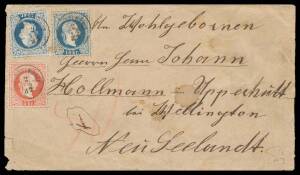 An Wohlgebornen
Herrn Herrn Johann
Hollmann - Upperhutt
bei Wellington
Neu Seelandt.